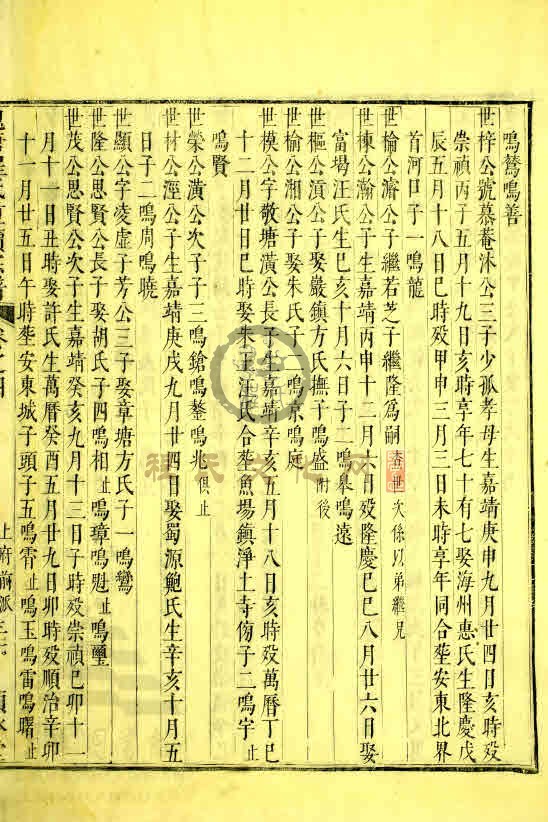 鳴鶯鳴善
世梓公號慕菴沐公三子少孤孝母生嘉靖庚申九月廿四日亥時殁
崇禎丙子五月十九日亥時享年七十有七娶海州惠氏生隆慶戊
辰五月十八日巳時殁甲申三月三日未時享年同合塟安東北界
首河口子一鳴龍
世楡公濟公子繼若芝子繼隆爲嗣 查世次係以弟繼兄
世楝公瀚公子生嘉靖丙申十二月六日殁隆慶巳巳八月廿六日娶
富堨汪氏生巳亥十月六日子二鳴皋鳴遠
世樞公濵公子娶巖鎮方氏撫子鳴盛附後
世楡公湘公子娶朱氏子二鳴京鳴庭
世模公字敬塘潢公長子生嘉靖辛亥五月十八日亥時殁萬曆丁巳
十二月廿日巳時娶朱王汪氏合塟魚場鎮淨土寺傍子二鳴宇止
鳴賢
世榮公潢公次子子二鳴鎗鳴鏊鳴兆俱止
世材公溼公子生嘉靖庚戌九月廿四日娶蜀源鮑氏生辛亥十月五
日子二鳴周鳴曉
世顯公字凌虛子芳公三子娶草塘方氏子一鳴鸞
世隆公思賢公長子娶胡氏子四鳴相止鳴璋鳴兝止鳴璽
世茂公思賢公次子生嘉靖癸亥九月十三日子時殁崇禎巳卯十一
月十一日丑時娶許氏生萬曆癸酉五月廿九日卯時殁順治辛卯
十一月廿五日午時塟安東城子頭子五鳴霄止鳴玉鳴雷鳴曙止
程氏文化网